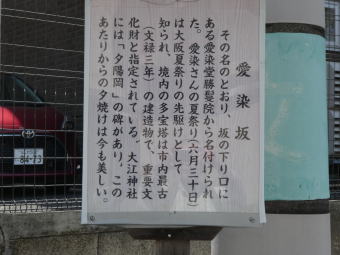 愛染坂
その名のとおり、坂の下り口に
ある愛染堂勝鬘院から名付けられ
た。愛染さんの夏祭り(六月三十日)
は大阪夏祭りの先駆けとして
知られ、境内の多宝塔は市内最古
(文禄三年)の建造物で、重要文
化財と指定されている。大江神社
には「夕陽岡」の碑があり、この
あたりからの夕焼けは今も美しい。
84-73